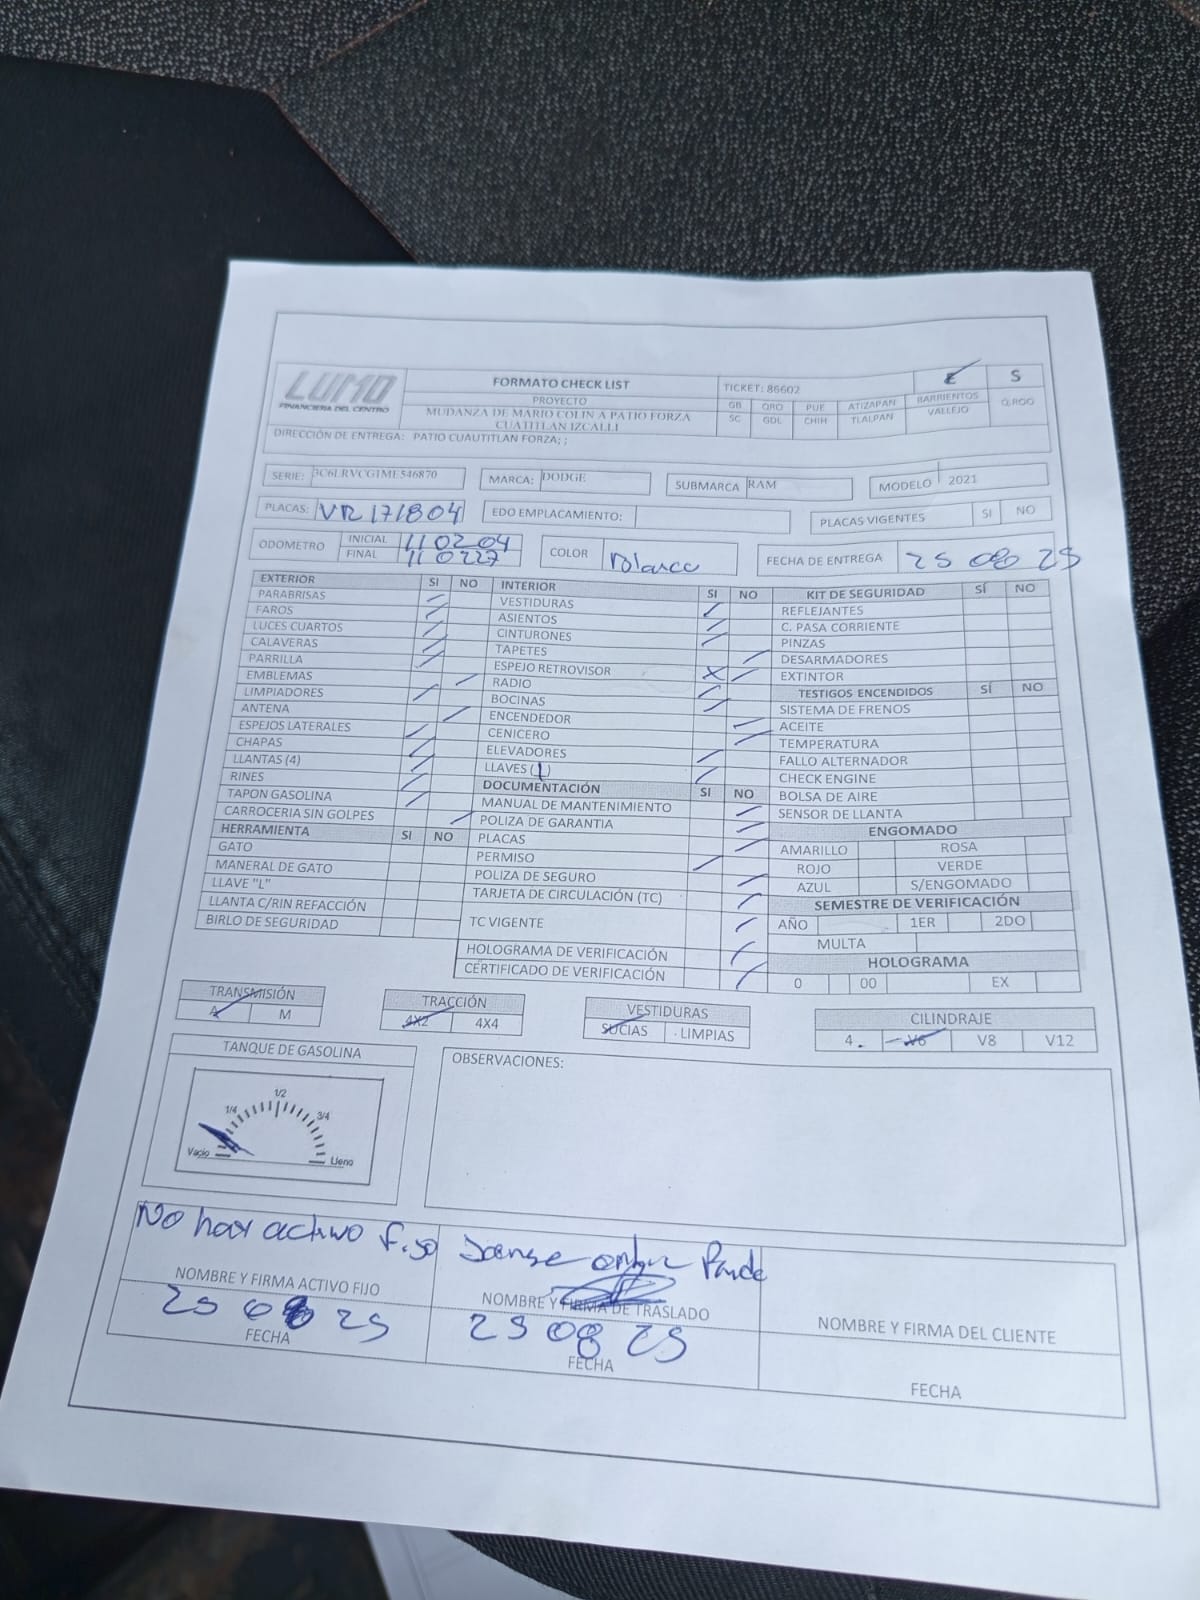 LUMO
FINANCIERA DEL CENTRO
FORMATO CHECK LIST
PROYECTO
MUDANZA DE MARIO COLIN A PATIO FORZA
CUATITLAN IZCALLI
TICKET: 86602
E S
GB QRO PUE ATIZAPAN BARRIENTOS Q.ROO
SC GDL CHIH TLALPAN VALLEJO
DIRECCIÓN DE ENTREGA: PATIO CUAUTITLAN FORZA; ;
SERIE: 3C6LRVCG1ME546870 MARCA: DODGE SUBMARCA RAM MODELO 2021
PLACAS: VR171804 EDO EMPLACAMIENTO: PLACAS VIGENTES SI NO
ODOMETRO INICIAL 110204 COLOR Blanco FECHA DE ENTREGA 25 08 25
FINAL 110227
EXTERIOR SI NO
PARABRISAS
FAROS
LUCES CUARTOS
CALAVERAS
PARRILLA
EMBLEMAS
LIMPIADORES
ANTENA
ESPEJOS LATERALES
CHAPAS
LLANTAS (4)
RINES
TAPON GASOLINA
CARROCERIA SIN GOLPES
HERRAMIENTA SI NO
GATO
MANERAL DE GATO
LLAVE "L"
LLANTA C/RIN REFACCIÓN
BIRLO DE SEGURIDAD
INTERIOR SI NO
VESTIDURAS
ASIENTOS
CINTURONES
TAPETES
ESPEJO RETROVISOR
RADIO
BOCINAS
ENCENDEDOR
CENICERO
ELEVADORES
LLAVES (1)
DOCUMENTACIÓN SI NO
MANUAL DE MANTENIMIENTO
POLIZA DE GARANTIA
PLACAS
PERMISO
POLIZA DE SEGURO
TARJETA DE CIRCULACIÓN (TC)
TC VIGENTE
HOLOGRAMA DE VERIFICACIÓN
CERTIFICADO DE VERIFICACIÓN
KIT DE SEGURIDAD SÍ NO
REFLEJANTES
C. PASA CORRIENTE
PINZAS
DESARMADORES
EXTINTOR
TESTIGOS ENCENDIDOS SÍ NO
SISTEMA DE FRENOS
ACEITE
TEMPERATURA
FALLO ALTERNADOR
CHECK ENGINE
BOLSA DE AIRE
SENSOR DE LLANTA
ENGOMADO
AMARILLO ROSA
ROJO VERDE
AZUL S/ENGOMADO
SEMESTRE DE VERIFICACIÓN
AÑO 1ER 2DO
MULTA
HOLOGRAMA
0 00 EX
TRANSMISIÓN
A M
TRACCIÓN
4X2 4X4
VESTIDURAS
SUCIAS LIMPIAS
CILINDRAJE
4 V6 V8 V12
TANQUE DE GASOLINA
Vacio 1/4 1/2 3/4 Lleno
OBSERVACIONES:
No hay activo fijo
NOMBRE Y FIRMA ACTIVO FIJO
25 08 25
FECHA
NOMBRE Y FIRMA DE TRASLADO
25 08 25
FECHA
NOMBRE Y FIRMA DEL CLIENTE
FECHA